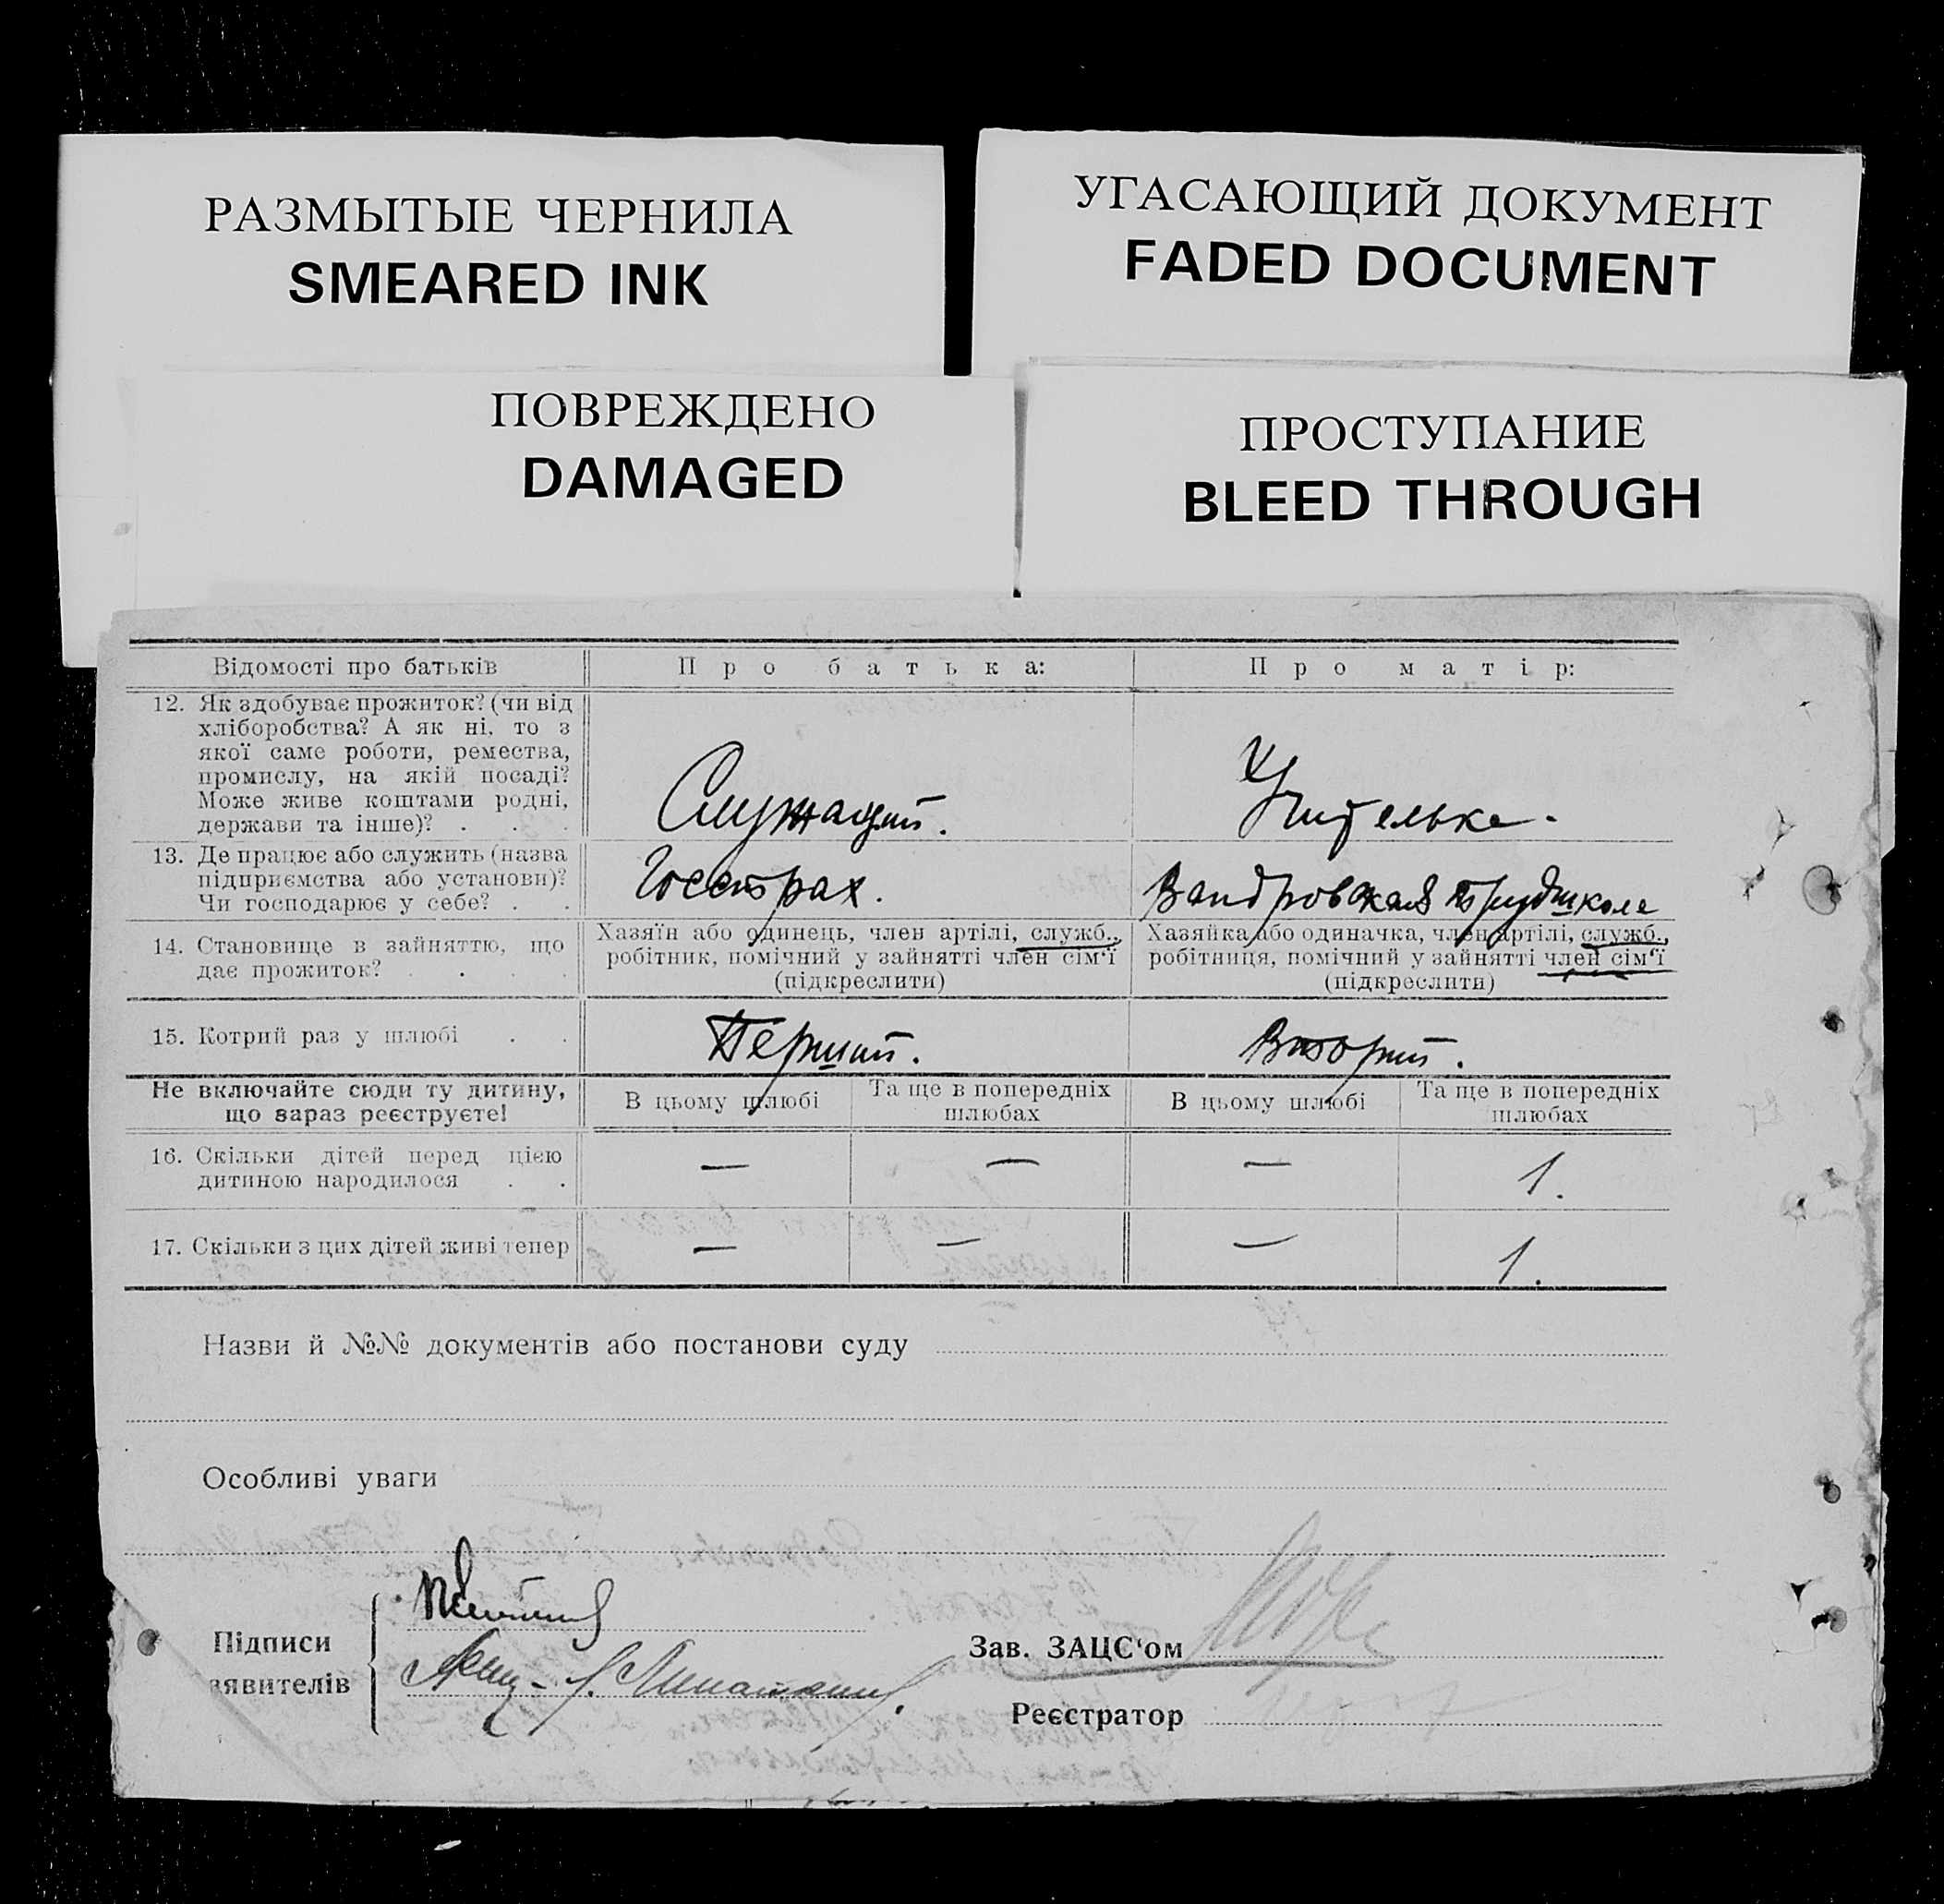 РАЗМЫТЫЕ ЧЕРНИЛА
SMEARED INK
УГАСАЮЩИЙ ДОКУМЕНТ
FADED DOCUMENT
ПОВРЕЖДЕНО
DAMAGED
ПРОСТУПАНИЕ
BLEED THROUGH
Відомості про батьків
Про батька:
Про матір:
12. Як здобуває прожиток? (чи від
хліборобства? А як ні, то з
якої саме роботи, ремества,
промислу, на якій посаді?
Може живе коштами родні,
держави та інше)? . . .
Служащий.
Учителька.
13. Де працює або служить (назва
підприємства або установи)?
Чи господарює у себе? . .
Госстрах.
трудшкола
14. Становище в зайняттю, що
дає прожиток? . . . .
Хазяїн або одинець, член артілі, служб.,
робітник, помічний у зайнятті член сім'ї
(підкреслити)
Хазяйка або одиначка, член артілі, служб.,
робітниця, помічний у зайнятті член сім'ї
(підкреслити)
15. Котрий раз у шлюбі . .
Перший.
Вторий.
Не включайте сюди ту дитину,
що зараз реєструєте!
В цьому шлюбі
Та ще в попередніх
шлюбах
В цьому шлюбі
Та ще в попередніх
шлюбах
16. Скільки дітей перед цією
дитиною народилося . .
—
—
—
1.
17. Скільки з цих дітей живі тепер
—
—
—
1.
Назви й №№ документів або постанови суду
Особливі уваги
Підписи
заявителів
Зав. ЗАЦС'ом
Реєстратор